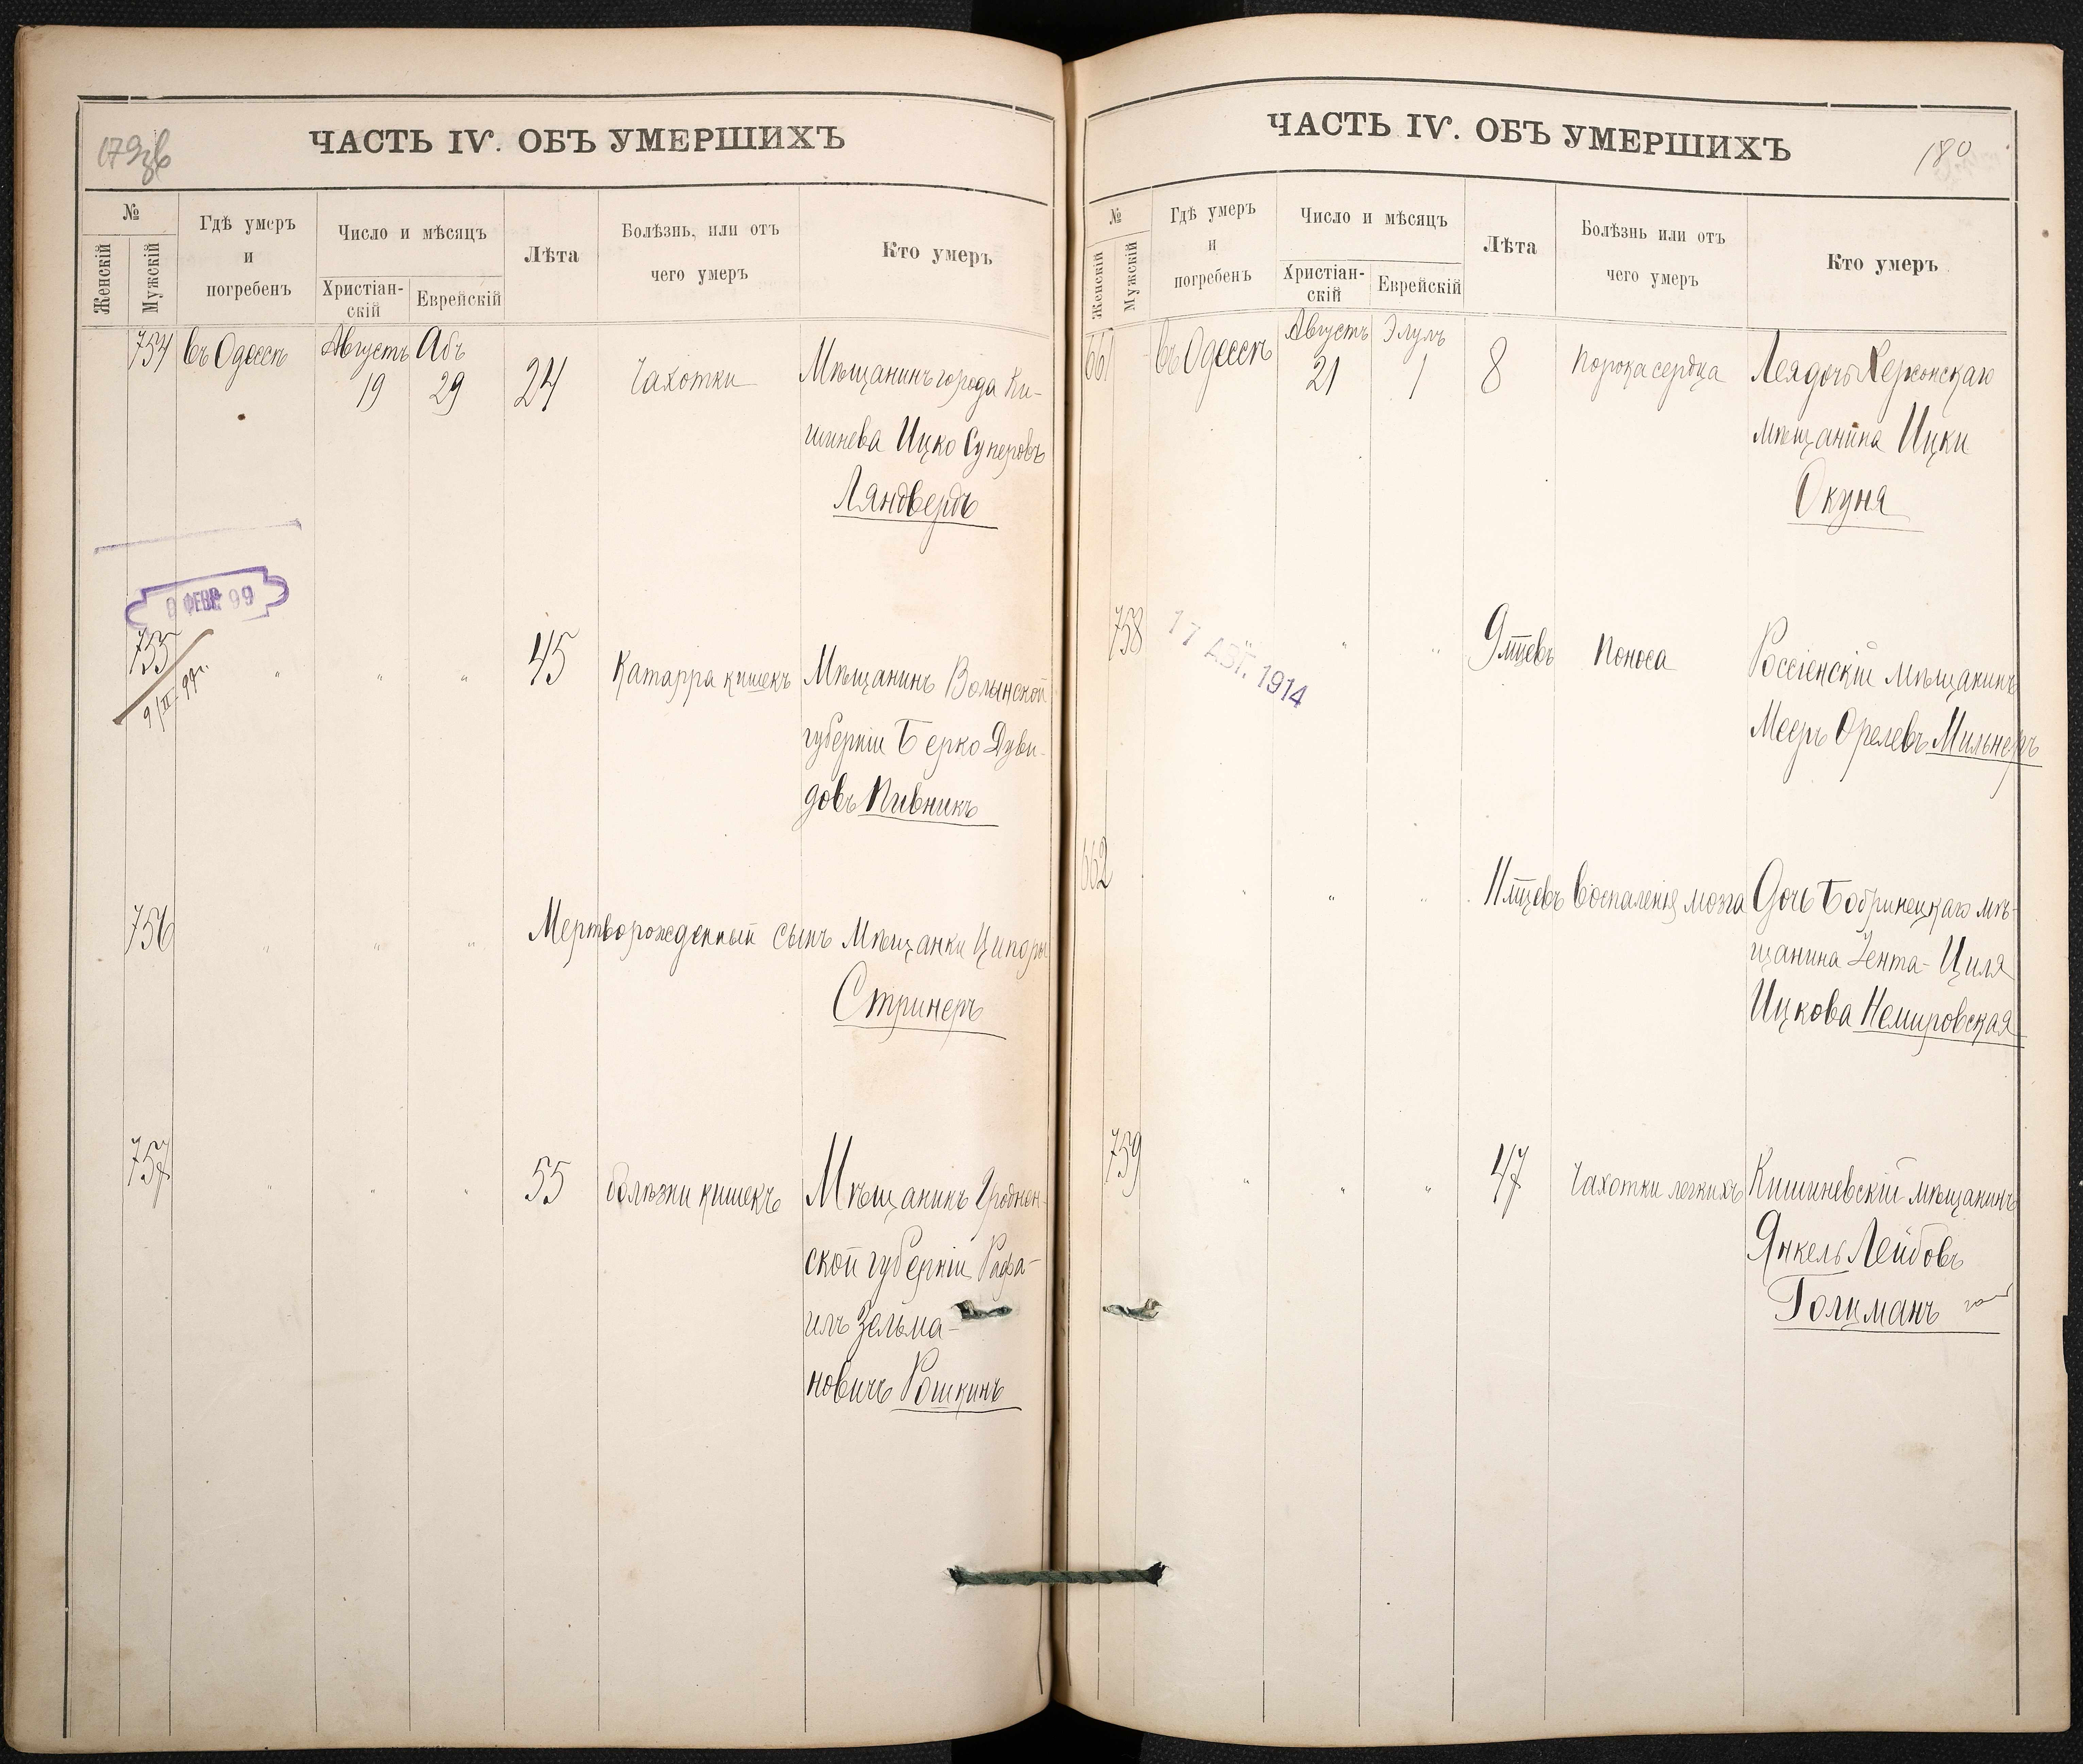 179об
ЧАСТЬ IV. ОБЪ УМЕРШИХЪ
№
Женскій
Мужскій
Гдѣ умеръ
и
погребенъ
Число и мѣсяцъ
Христіан-
скій
Еврейскій
Лѣта
Болѣзнь, или отъ
чего умеръ
Кто умеръ
754 въ Одессѣ Августъ 19 Абъ 29 24 Чахотки Мѣщанинъ города Ки-
шинева Ицко Суперовъ
Ляндвердъ
8 ФЕВР 99
755 " " " 45 Катарра кишекъ Мѣщанинъ Волынской
9/II-99г.
губерніи Берко Дуви-
довъ Пивникъ
756 " " " Мертворожденный сынъ Мѣщанки Ципоры
Стринеръ
757 " " " 55 Болѣзни кишекъ Мѣщанинъ Гроднен-
ской губерніи Рафа-
илъ Зельма-
новичъ Рошкинъ
180
ЧАСТЬ IV. ОБЪ УМЕРШИХЪ
№
Женскій
Мужскій
Гдѣ умеръ
и
погребенъ
Число и мѣсяцъ
Христіан-
скій
Еврейскій
Лѣта
Болѣзнь или отъ
чего умеръ
Кто умеръ
661 въ Одессѣ Августъ 21 Элулъ 1 8 Порока сердца Лея дочь Херсонскаго
мѣщанина Ицки
Окуня
758 " " 9 мцевъ Поноса Россіенскій мѣщанинъ
17 АВГ. 1914
Мееръ Орелевъ Мильнеръ
662 " " " 11 мцевъ Воспаленія мозга Дочь Бобринецкаго мѣ-
щанина Зента-Циля
Ицкова Немировская
759 " " " 47 Чахотки легкихъ Кишиневскій мѣщанинъ
Янкель Лейбовъ
Голцманъ